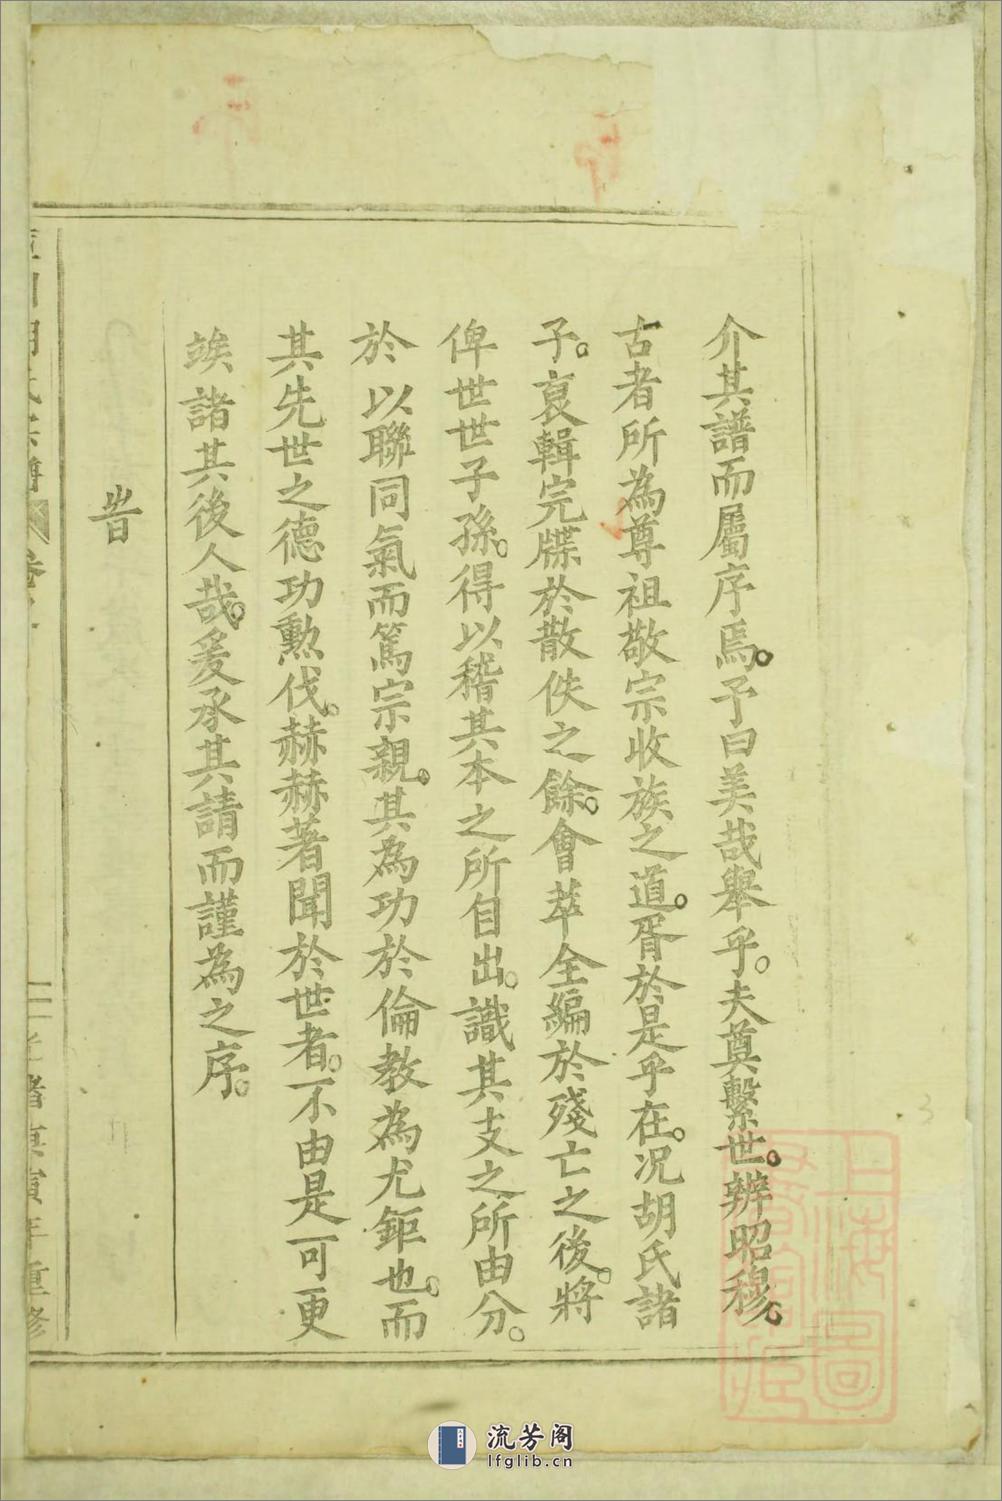 介其譜而屬序焉。予曰美哉舉乎。夫奠繫世。辨昭穆。
古者所為尊祖敬宗收族之道。胥於是乎在。况胡氏諸
子。裒輯完牒於散佚之餘。會萃全編於殘亡之後。將
俾世世子孫。得以稽其本之所自出。識其支之所由分。
於以聯同氣而篤宗親。其為功於倫教為尤鉅也。而
其先世之德功勳伐。赫赫著聞於世者。不由是可更
竢諸其後人哉。爰承其請而謹為之序。
旹
重修
上海圖
流芳阁
lfglib.cn